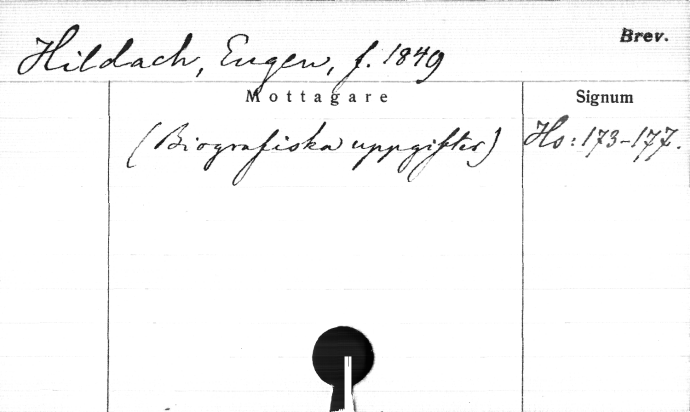 Brev.
Hildach, Eugen, f. 1849
Mottagare Signum
(Biografiska uppgifter) Hs: 173-177.